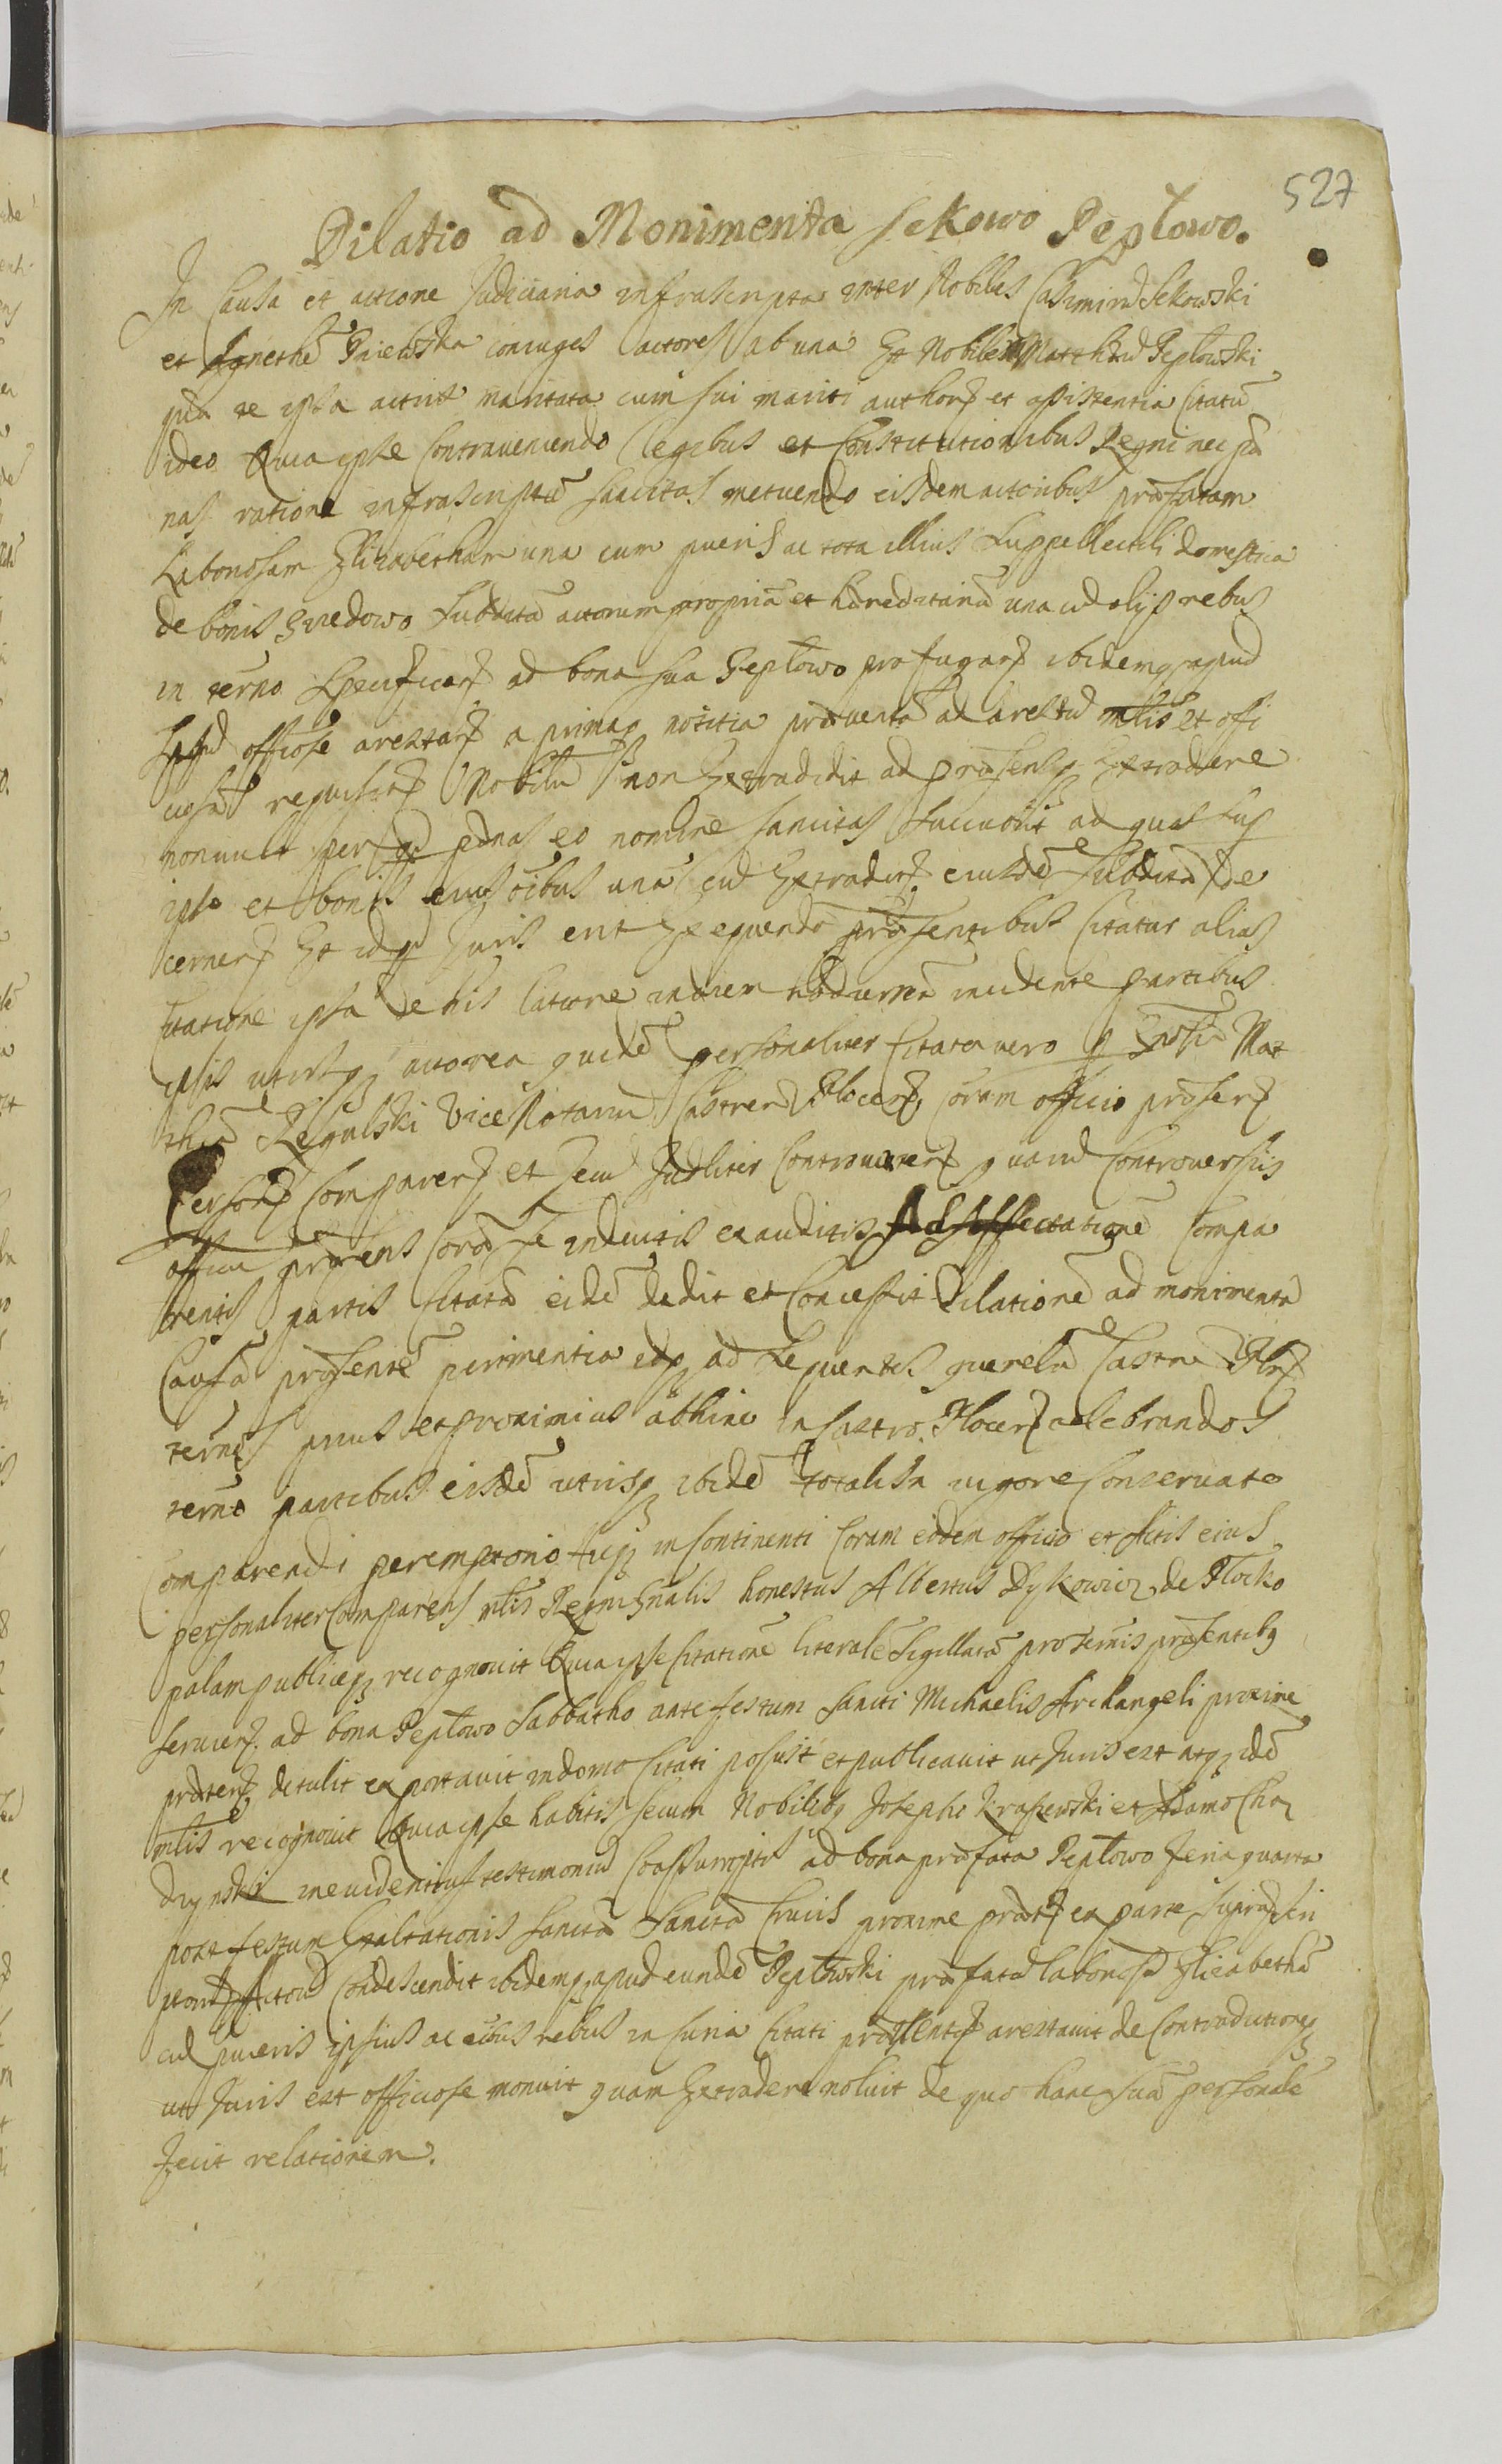 527
Dilatio ad Monimenta Sekowo Peptowo.
In Causa et actione Judiciaria infrascripta inter Nobiles Casimirū Sekowski
et Agnethē coniuges actores ab una Et Nobilē Matthæū Peptowski
quæ se ipsa actrix maritata cum sui mariti authorꝭ et assistentia Citatū
ideo Quia ipse Contraveniendo legibus et Constitutionibus Regni nec pæ
nas ratione infrascriptū sancitas metuendo eisdem actoribus præfatam
Laboriosam Elizabetham una cum pueris ac tota illius Suppellectili domestica
de bonis Gnedowo Subditā actorum propriā et hæreditariā una cū alijs rebus
in termo Specificanꝭ ad bona sua Peptowo profugarꝭ ibidemqꝫ apud
officiose arestarꝭ a primaqꝫ notitia præventā ad arestū mlis et offi
requisitꝭ Nobiliū non Extradidit ad præsensqꝫ Extradere
nonvult per qd pænas eo nomine sancitas succubuit ad quas lus
ipso et bonis eius oibus una cū Extraditꝭ eiusdē Subditæ de
cernerꝭ Et id qd Juris erit Exequendo præsentibus Citatur alias
Citatione ipsa de his latiore indiem hodiernā incidente partibus
ipsis utrisqꝫ actorea quidē personaliter Citata vero p Gnosū Mat
thiā Regulski Vice Notariū Castren Plocenꝭ Coram officio præsenꝭ
Personꝭ Comparenꝭ et Secū Judliter Controvertenꝭ quarū Controversijs
officiū præsens Corā se inductis exauditis Ad affectationē Compa
rentis partis Citatæ eidē dedit et Concessit Dilationē ad monimenta
Causā præsentē pertinentia eqꝫ ad Sequentes querelarū Castren Plocꝭ
termos prius et proximius abhinc in Castro Plocenꝭ celebrandos
termo partibus eisdē utrisqꝫ ibidē totali in vigore Conservato
Comparendi peremptorio Hicqꝫ in Continenti Coram eodem officio et Actis eius
personaliter Comparens mlis Regni Gnalis honestus Albertus Dykowicz de Plocko
palam publiceqꝫ recognovit Quia ipse Citationē literalē Sigillatā pro termis præsentibꝯ
servienꝭ ad bona Peptowo Sabbatho ante festum Sancti Michaelis Archangeli proxime
præterꝭ detulit exportavit in domo Citati posuit et publicavit ut Juris est atqꝫ idē
mlis recognovit Quia ipse habitis secum Nobilibꝯ Josepho Kraszewski et Adamo Cha
drynski in evidentius testimoniū Coassumptis ad bona præfata Peptowo feria quarta
post festum Exaltationis Sanctæ Sanctæ Crucis proxime prætꝭ ex parte suprascri
ptorū Actorū Condescendit ibidemqꝫ apud eundē Peptowski præfatā laboriosā Elizabethā
cū pueris ipsius ac oibus rebus in Curia Citati arestavit de Contradictioneqꝫ
ut Juris est officiose monuit quam Extradere noluit de quo hanc suā personalē
fecit relationem.